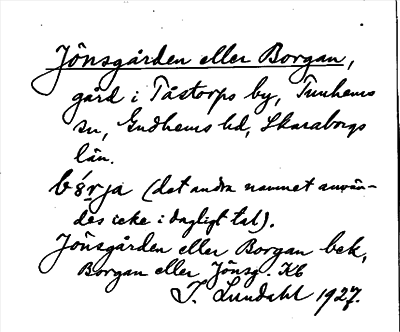 Jönsgården eller Borgan,
gård i Tåstorps by, Tunhems
sn, Gudhems hd, Skaraborgs
län.
bórja (det andra namnet använ-
des icke i dagligt tal).
Jönsgården eller Borgan bek,
Borgan eller Jönsg. Kb
I. Lundahl 1927.